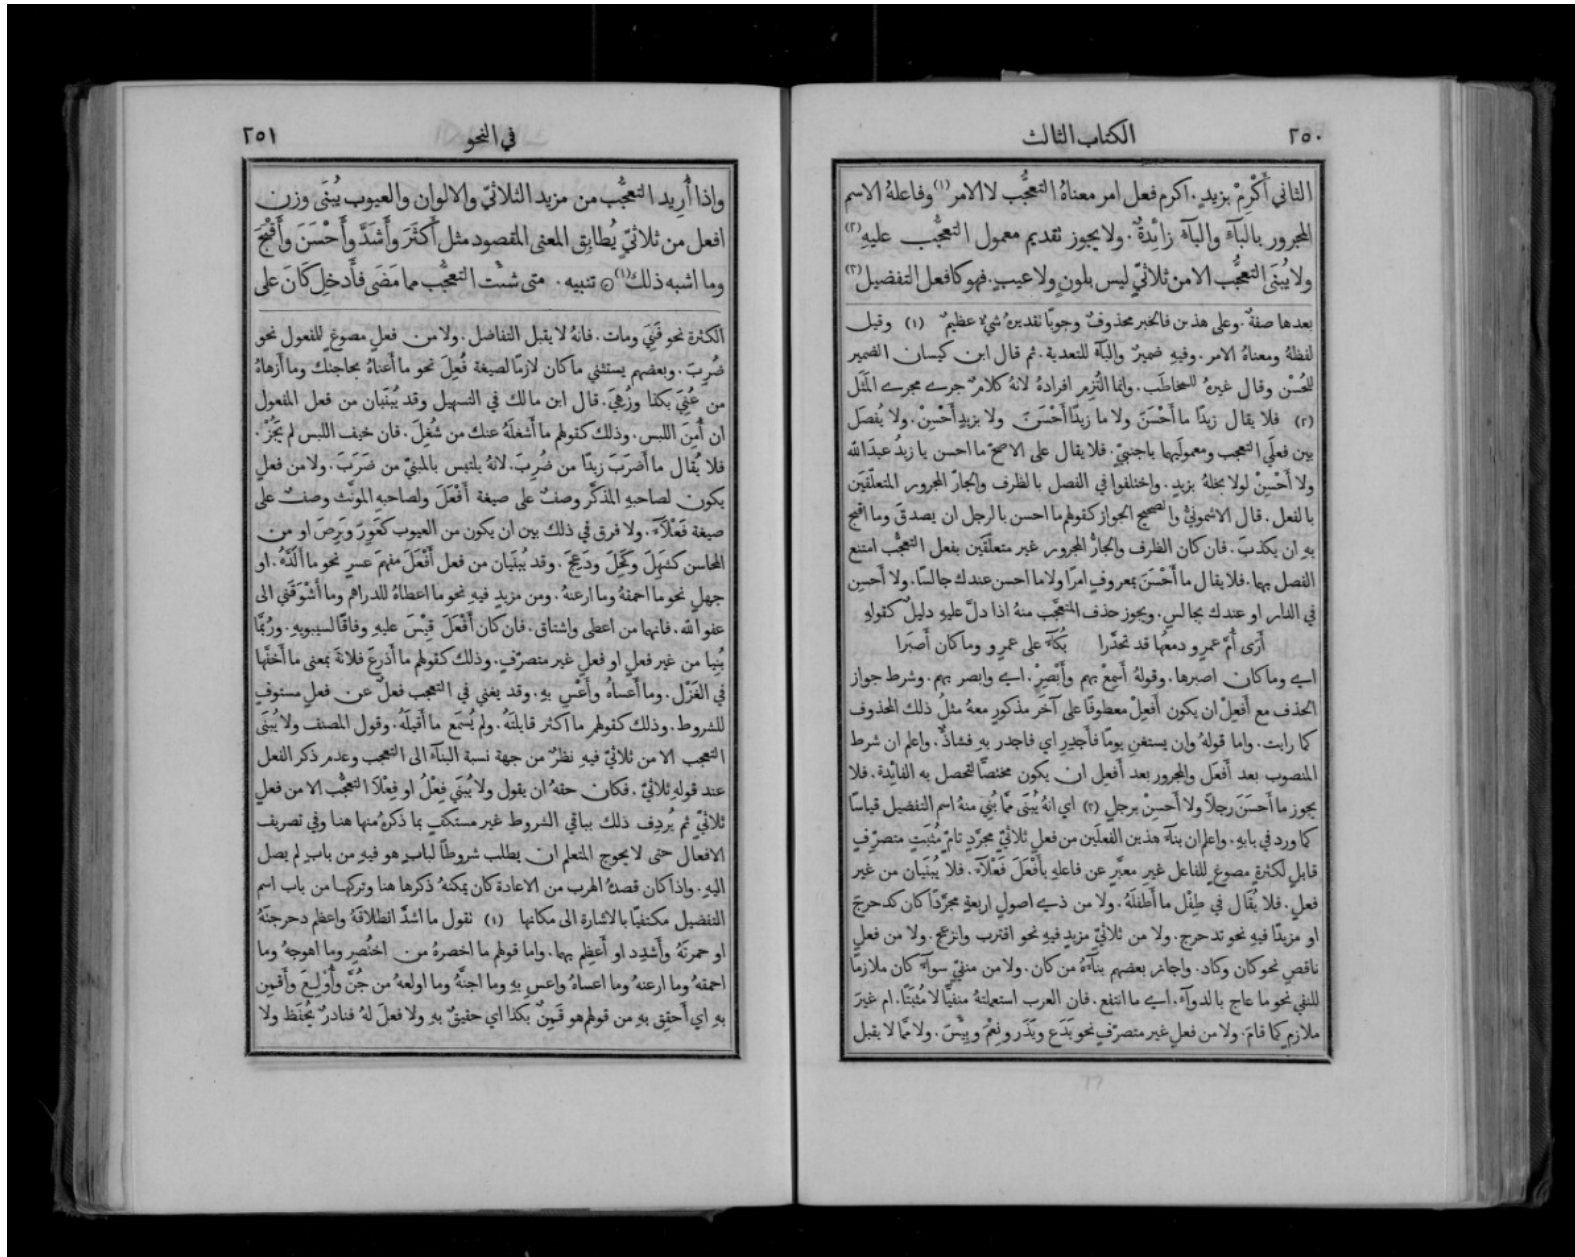 ٢٥٠
الكتاب الثالث
الثاني أَكْرِمْ بزيدٍ. اكرم فعل امر معناهُ التعجُّب لا الامر (١) وفاعلهُ الاسم
المجرور بالبآءَ والبآءَ زائِدةٌ. ولا يجوز تقديم معمول التعجُّب عليهِ (٢)
ولا يُبنَى التعجُّب الا من ثلاثيٍّ ليس بلونٍ ولا عيبٍ. فهو كافعل التفضيل (٣)
بعدها صفةٌ. وعلى هذين فالخبر محذوفٌ وجوبًا تقديرهُ شيءٌ عظيمٌ (١) وقيل
لفظهُ ومعناهُ الامر. وفيهِ ضميرٌ والبآءَ للتعدية. ثم قال ابن كيسان الضمير
للحُسْن وقال غيرهُ للمخاطَب. وانما التُزِم افرادهُ لانهُ كلامٌ جرے مجرے المَثَل
(٢) فلا يقال زيدًا ما أَحْسَنَ ولا ما زيدًا أَحْسَنَ ولا بزيدٍ أَحْسِنْ. ولا يُفصَل
بين فعلَي التعجب ومعموليهما باجنبيٍّ. فلا يقال على الاصحّ ما احسن يا زيدُ عبدَ الله
ولا أَحْسِنْ لولا بخلهُ بزيدٍ. واختلفوا في الفصل بالظرف والجارّ المجرور المتعلّقَين
بالفعل. قال الاشمونيُّ والصحيح الجواز كقولهم ما احسن بالرجل ان يصدقَ وما اقبح
بهِ ان يكذبَ. فان كان الظرف والجارُّ المجرور غير متعلّقَين بفعل التعجُّب امتنع
الفصل بهما. فلا يقال ما أَحْسَنَ بمعروفٍ امرًا ولا ما احسن عندك جالسًا. ولا أَحسِن
في الدار او عندك بجالسٍ. ويجوز حذف المتعجَّب منهُ اذا دلَّ عليهِ دليلٌ كقولهِ
أَرَى أُمَّ عمرٍو دمعها قد تحدَّرا بُكآءً على عمرٍو وما كان أَصبَرا
اے وما كان اصبرها. وقولهُ أَسمِعْ بهم وأَبْصِرْ. اے وابصر بهم. وشرط جواز
الحذف مع أَفعِلْ ان يكون أَفعِلْ معطوفًا على آخَر مذكورٍ معهُ مثلُ ذلك المحذوف
كما رايت. واما قولهُ وان يستغنِ يومًا فأَجدِرِ اي فاجدر بهِ فشاذٌّ. واعلم ان شرط
المنصوب بعد أَفعَل والمجرور بعد أَفعِل ان يكون مختصًّا لتحصل به الفائِدة. فلا
يجوز ما أَحسَنَ رجلاً ولا أَحسِنْ برجلٍ (٣) اي انهُ يُبنَى ممَّا بُنِيَ منهُ اسم التفضيل قياسًا
كما ورد في بابهِ. واعلم ان بنآءَ هذين الفعلَين من فعلٍ ثلاثيٍّ مجرَّدٍ تامٍّ مُثبَتٍ متصرّفٍ
قابلٍ لكثرةٍ مصوغٍ للفاعل غير معبَّر عن فاعلهِ بأَفْعَلَ فَعْلآءَ. فلا يُبنَيان من غير
فعلٍ. فلا يُقَال في طِفْل ما أَطفَلَهُ. ولا من ذے اصولٍ اربعةٍ مجرَّدًا كان كدحرج
او مزيدًا فيهِ نحو تدحرج. ولا من ثلاثيٍّ مزيدٍ فيهِ نحو اقترب وانزعج. ولا من فعلٍ
ناقصٍ نحو كان وكاد. واجاز بعضهم بنآءَهُ من كان. ولا من منفيٍّ سوآءٌ كان ملازمًا
للنفي نحو ما عاج بالدوآءِ. اے ما انتفع. فان العرب استعملتهُ منفيًّا لا مُثبَتًا. ام غيرَ
ملازمٍ كما قامَ. ولا من فعلٍ غير متصرّفٍ نحو يَدَع ويَذَر ونِعْمَ وبِئْسَ. ولا ممَّا لا يقبل
في النحو
٢٥١
واذا أُرِيد التعجُّب من مزيد الثلاثيّ والالوان والعيوب يُبنَى وزن
افعل من ثلاثيٍّ يُطابِق المعنى المقصود مثل أَكثَرَ وأَشَدَّ وأَحْسَنَ وأَقْبَحَ
وما اشبه ذلك (١) ۞ تنبيه. متى شئْت التعجُّب مما مَضَى فأَدخِل كَانَ على
الكثرة نحو فَنِيَ ومات. فانهُ لا يقبل التفاضل. ولا من فعلٍ مصوغٍ للمفعول نحو
ضُرِبَ. وبعضهم يستثني ما كان لازمًا لصيغة فُعِلَ نحو ما أَعناهُ بحاجتك وما أَزهاهُ
من عُنِيَ بكذا وزُهِيَ. قال ابن مالك في التسهيل وقد يُبنَيان من فعل المفعول
ان أُمِنَ اللبس. وذلك كقولهم ما أَشغلَهُ عنك من شُغِلَ. فان خيف اللبس لم يَجُزْ.
فلا يُقال ما أَضرَبَ زيدًا من ضُرِبَ. لانهُ يلتبس بالمبنيّ من ضَرَبَ. ولا من فعلٍ
يكون لصاحبهِ المذكَّر وصفٌ على صيغة أَفْعَلَ ولصاحبهِ المونَّث وصفٌ على
صيغة فَعْلآءَ. ولا فرق في ذلك بين ان يكون من العيوب كعَوِرَ وبَرِصَ او من
المحاسن كشَهِلَ وكَحِلَ ودَعِجَ. وقد يُبنَيان من فعل أَفْعَلَ مفهمَ عسرٍ نحو ما أَلَدَّهُ. او
جهلٍ نحو ما احمقهُ وما ارعنهُ. ومن مزيدٍ فيهِ نحو ما اعطاهُ للدراهم وما أَشْوَقَني الى
عفو الله. فانهما من اعطى واشتاق. فان كان أَفْعَلَ قِيْسَ عليهِ وفاقًا لسيبويهِ. ورُبَّما
بُنِيا من غير فعلٍ او فعلٍ غير متصرّفٍ. وذلك كقولهم ما أَذرعَ فلانةَ بمعنى ما أَخفَّها
في الغَزْل. وما أَعساهُ وأَعْسِ بهِ. وقد يغني في التعجب فعلٌ عن فعلٍ مستوفٍ
للشروط. وذلك كقولهم ما اكثر قايلتَهُ. ولم يُسمَع ما أَقيلَهُ. وقول المصنف ولا يُبنَى
التعجب الا من ثلاثيٍّ فيهِ نظرٌ من جهة نسبة البنآءَ الى التعجب وعدم ذكر الفعل
عند قولهِ ثلاثيٍّ. فكان حقهُ ان يقول ولا يُبنَى فِعْلُ او فِعْلاَ التعجُّب الا من فعلٍ
ثلاثيٍّ ثم يُردِف ذلك بباقي الشروط غير مستكفٍ بما ذكرهُ منها هنا وفي تصريف
الافعال حتى لا يحوج المتعلم ان يطلب شروطًا لبابٍ هو فيهِ من بابٍ لم يصل
اليهِ. واذا كان قصدهُ الهرب من الاعادة كان يمكنهُ ذكرها هنا وتركها من باب اسم
التفضيل مكتفيًا بالاشارة الى مكانها (١) نقول ما اشدَّ انطلاقَهُ واعظم دحرجتَهُ
او حمرتَهُ وأَشدِد او أَعظِم بهما. واما قولهم ما اخصرهُ من اختُصِر وما اهوجهُ وما
احمقهُ وما ارعنهُ وما اعساهُ واعسِ بهِ وما اجنَّهُ وما اولعهُ من جُنَّ وأُوْلِعَ وأَقمِن
بهِ اي أَحقِق بهِ من قولهم هو قَمِنٌ بكذا اي حقيقٌ بهِ ولا فعلَ لهُ فنادرٌ يُحفَظ ولا